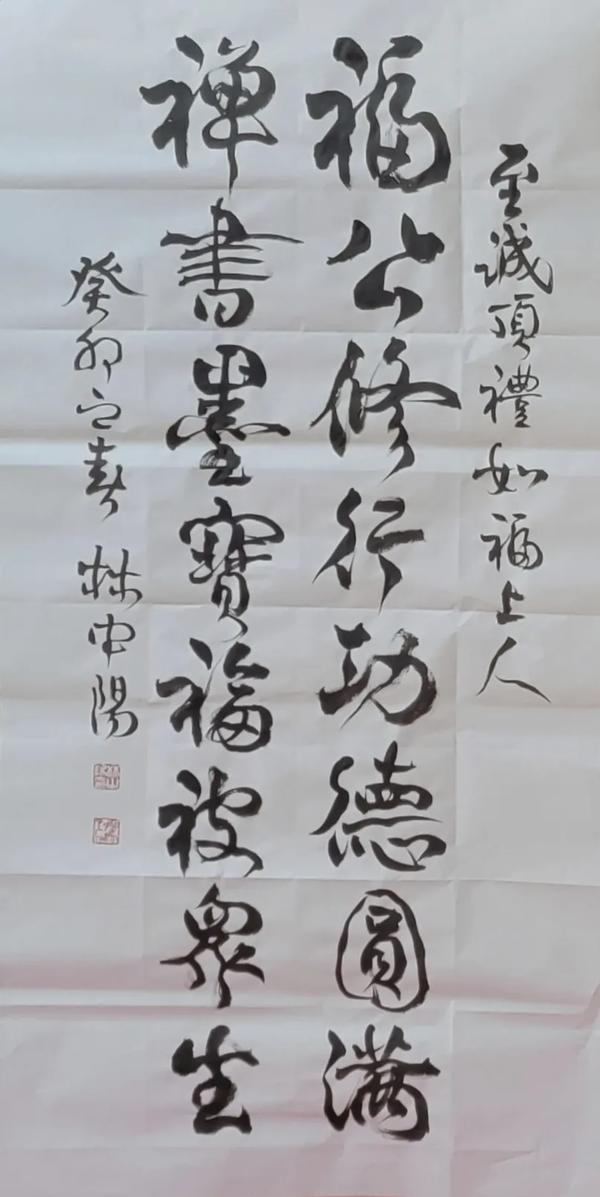 至誠頂禮如福上人
福公修行功德圓滿
禪書墨寶福被眾生
癸卯之春 林中陽